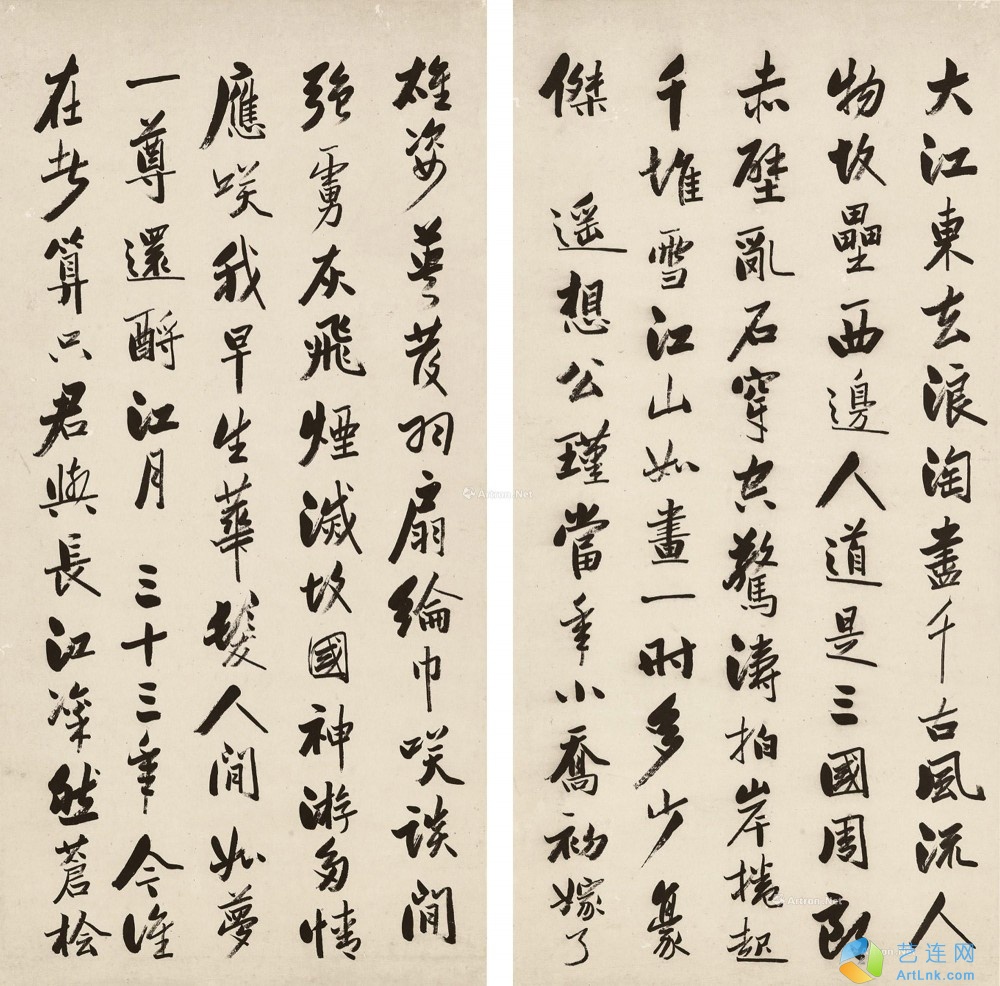 大江東去浪淘盡千古風流人
物故壘西邊人道是三國周郎
赤壁亂石穿空驚濤拍岸捲起
千堆雪江山如畫一時多少豪
傑 遥想公瑾當年小喬初嫁了
雄姿英發羽扇綸巾咲談間
強虜灰飛煙滅故國神游多情
應咲我早生華髮人間如夢
一尊還酹江月 三十三年今誰
在者算只君與長江凜然蒼檜
Artron.Net
Artron.Net
艺连网
ArtLnk.com